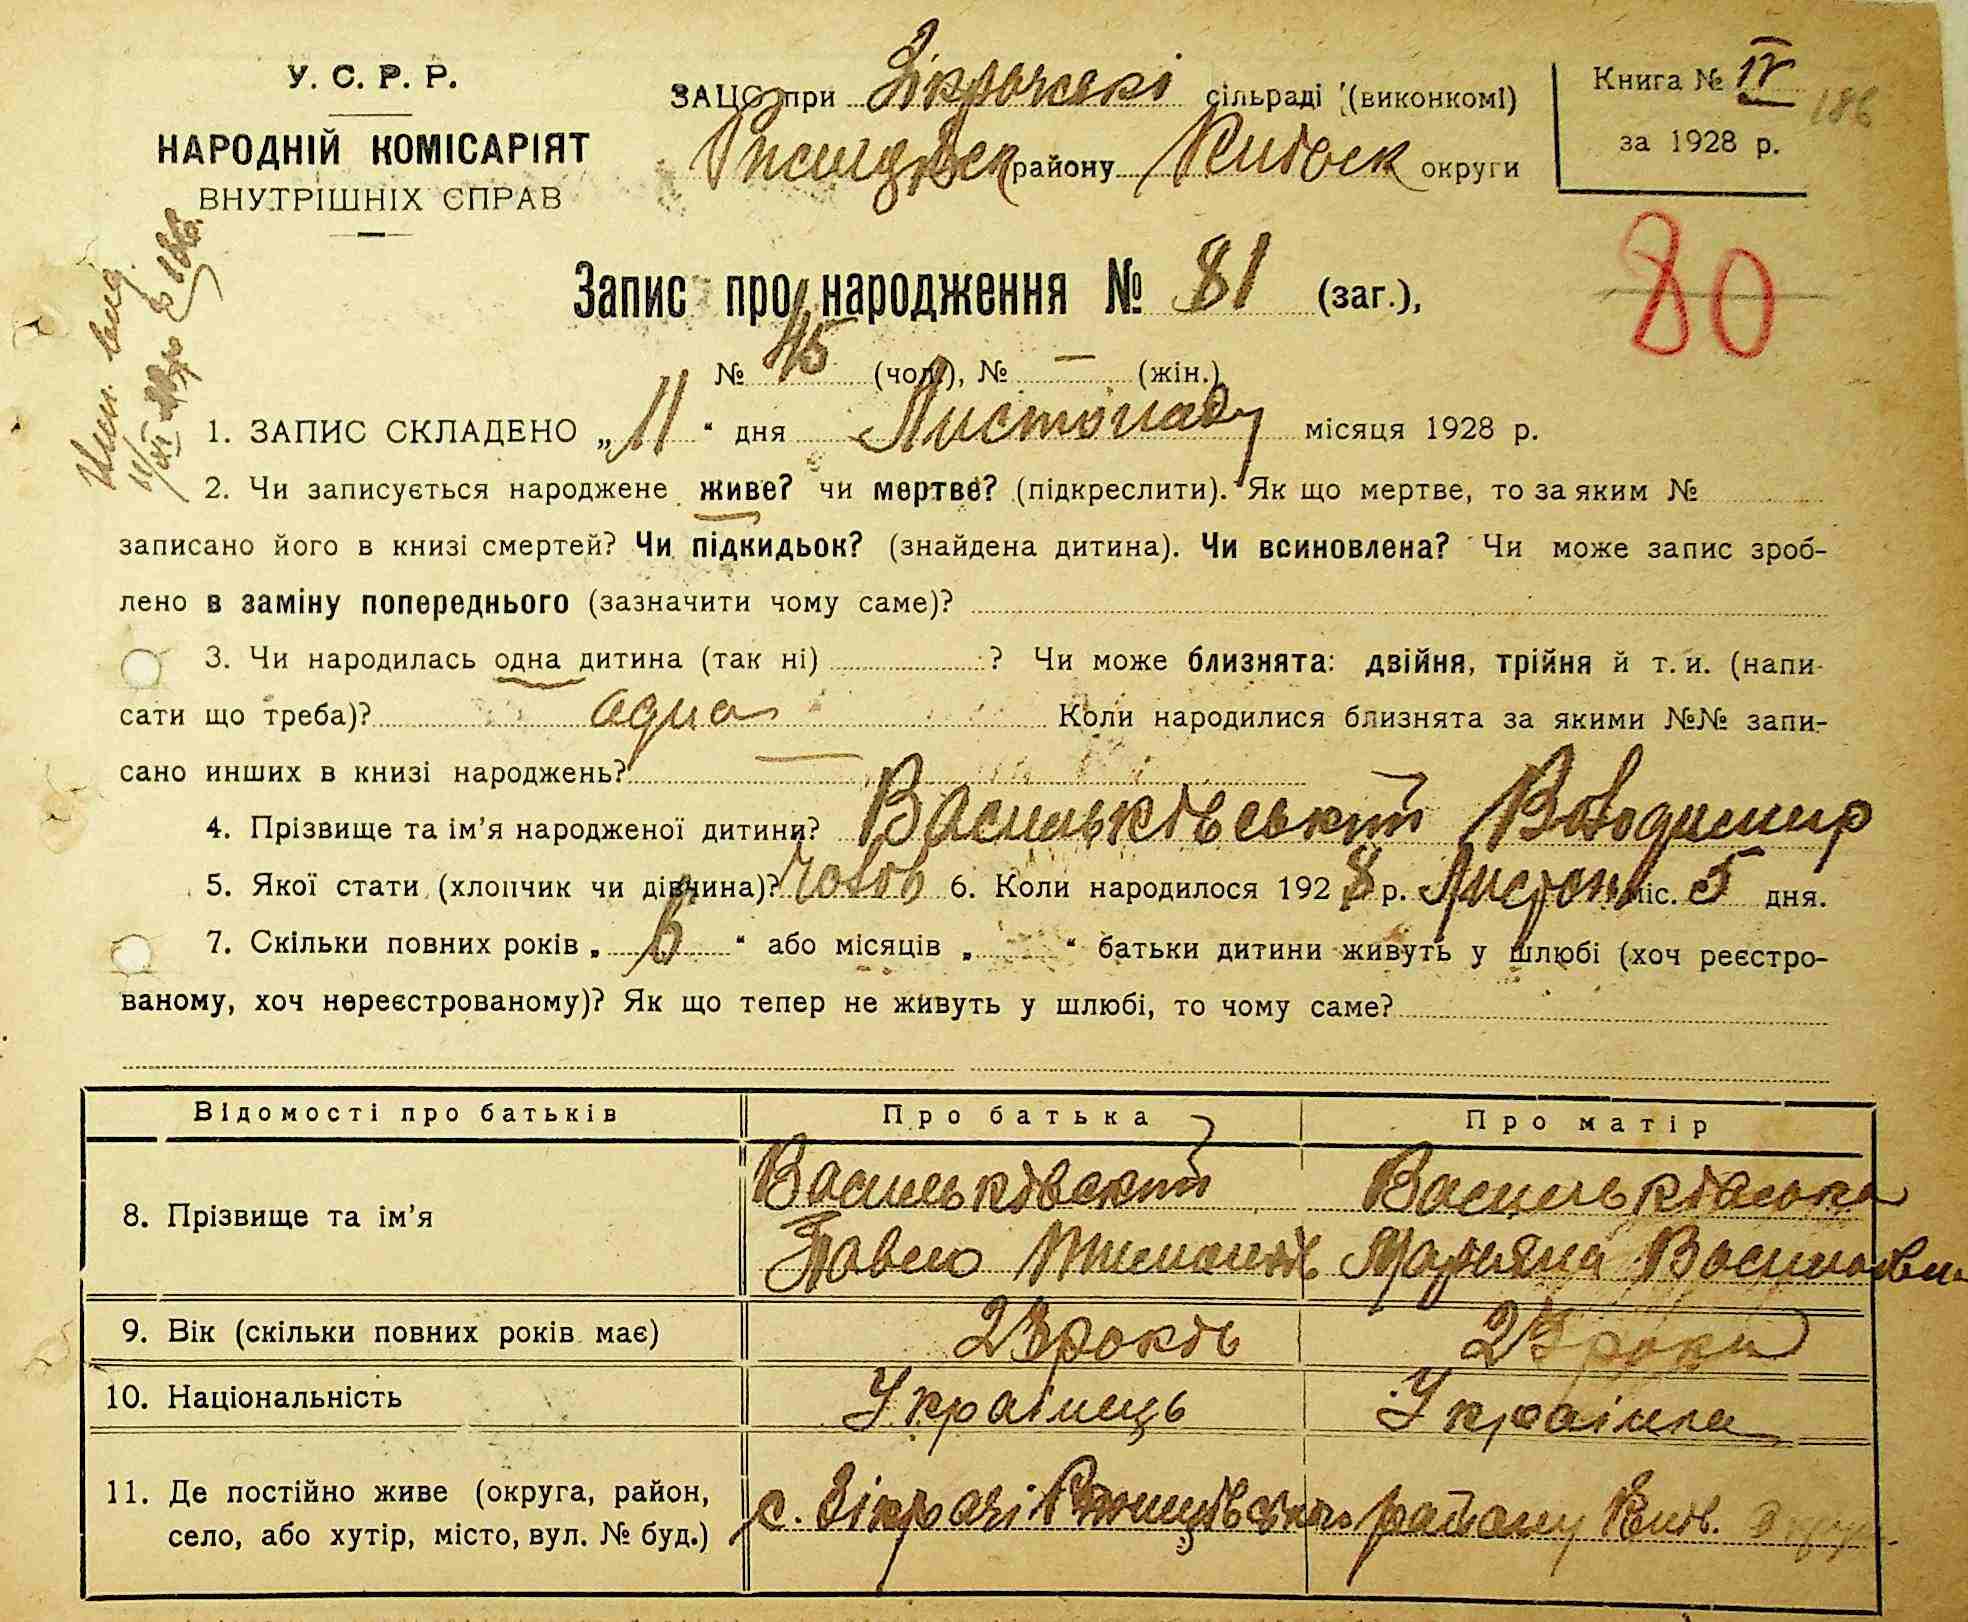 У. С. Р. Р.
НАРОДНІЙ КОМІСАРІЯТ
ВНУТРІШНІХ СПРАВ
ЗАЦС при Зікрачскі сільраді (виконкомі)
району Київськ округи
Книга № IV
186
за 1928 р.
80
Запис про народження № 81 (заг.),
№ 45 (чол.), № — (жін.)
1. ЗАПИС СКЛАДЕНО „11“ дня Листопаду місяця 1928 р.
2. Чи записується народжене живе? чи мертве? (підкреслити). Як що мертве, то за яким №
записано його в книзі смертей? Чи підкидьок? (знайдена дитина). Чи всиновлена? Чи може запис зроб-
лено в заміну попереднього (зазначити чому саме)?
3. Чи народилась одна дитина (так ні) ? Чи може близнята: двійня, трійня й т. и. (напи-
сати що треба)? одна Коли народилися близнята за якими №№ запи-
сано инших в книзі народжень? —
4. Прізвище та ім’я народженої дитини? Васильківський Володимир
5. Якої стати (хлопчик чи дівчина)? Чолов 6. Коли народилося 1928 р. Листоп міс. 5 дня.
7. Скільки повних років „6“ або місяців „ “ батьки дитини живуть у шлюбі (хоч реєстро-
ваному, хоч нереєстрованому)? Як що тепер не живуть у шлюбі, то чому саме?
Відомості про батьків Про батька Про матір
8. Прізвище та ім’я Васильківский Васильківська
Павло Мар'яна Василівна
9. Вік (скільки повних років має) 23 років 23 роки
10. Національність Українець Українка
11. Де постійно живе (округа, район,
село, або хутір, місто, вул. № буд.) с. Зікрачі Ржищівського району Київ. округи